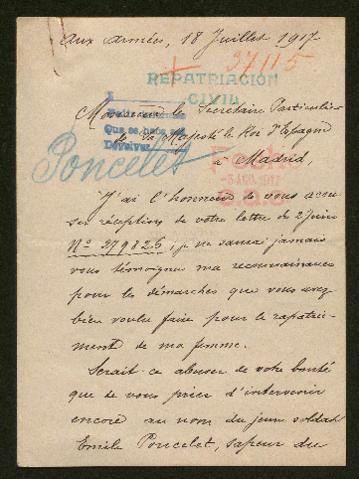 Aux Armées, 18 Juillet 1917
+ 37115
REPATRIACIÓN
CIVIL
Monsieur le Secrétaire Particulier
de Sa Majesté le Roi d'Espagne
Que se
Devolver
à Madrid,
Poncelet
-3 AGO. 1917
J'ai l'honneur de vous accu
ser réception de votre lettre du 2 Juin
No 279826; je ne saurai jamais
vous témoigner ma reconnaissance
pour les démarches que vous avez
bien voulu faire pour le rapatrie-
ment de ma femme.
Serait-ce abuser de votre bonté
que de vous prier d'intervenir
encore au nom du jeune soldat
Emile Poncelet, sapeur du